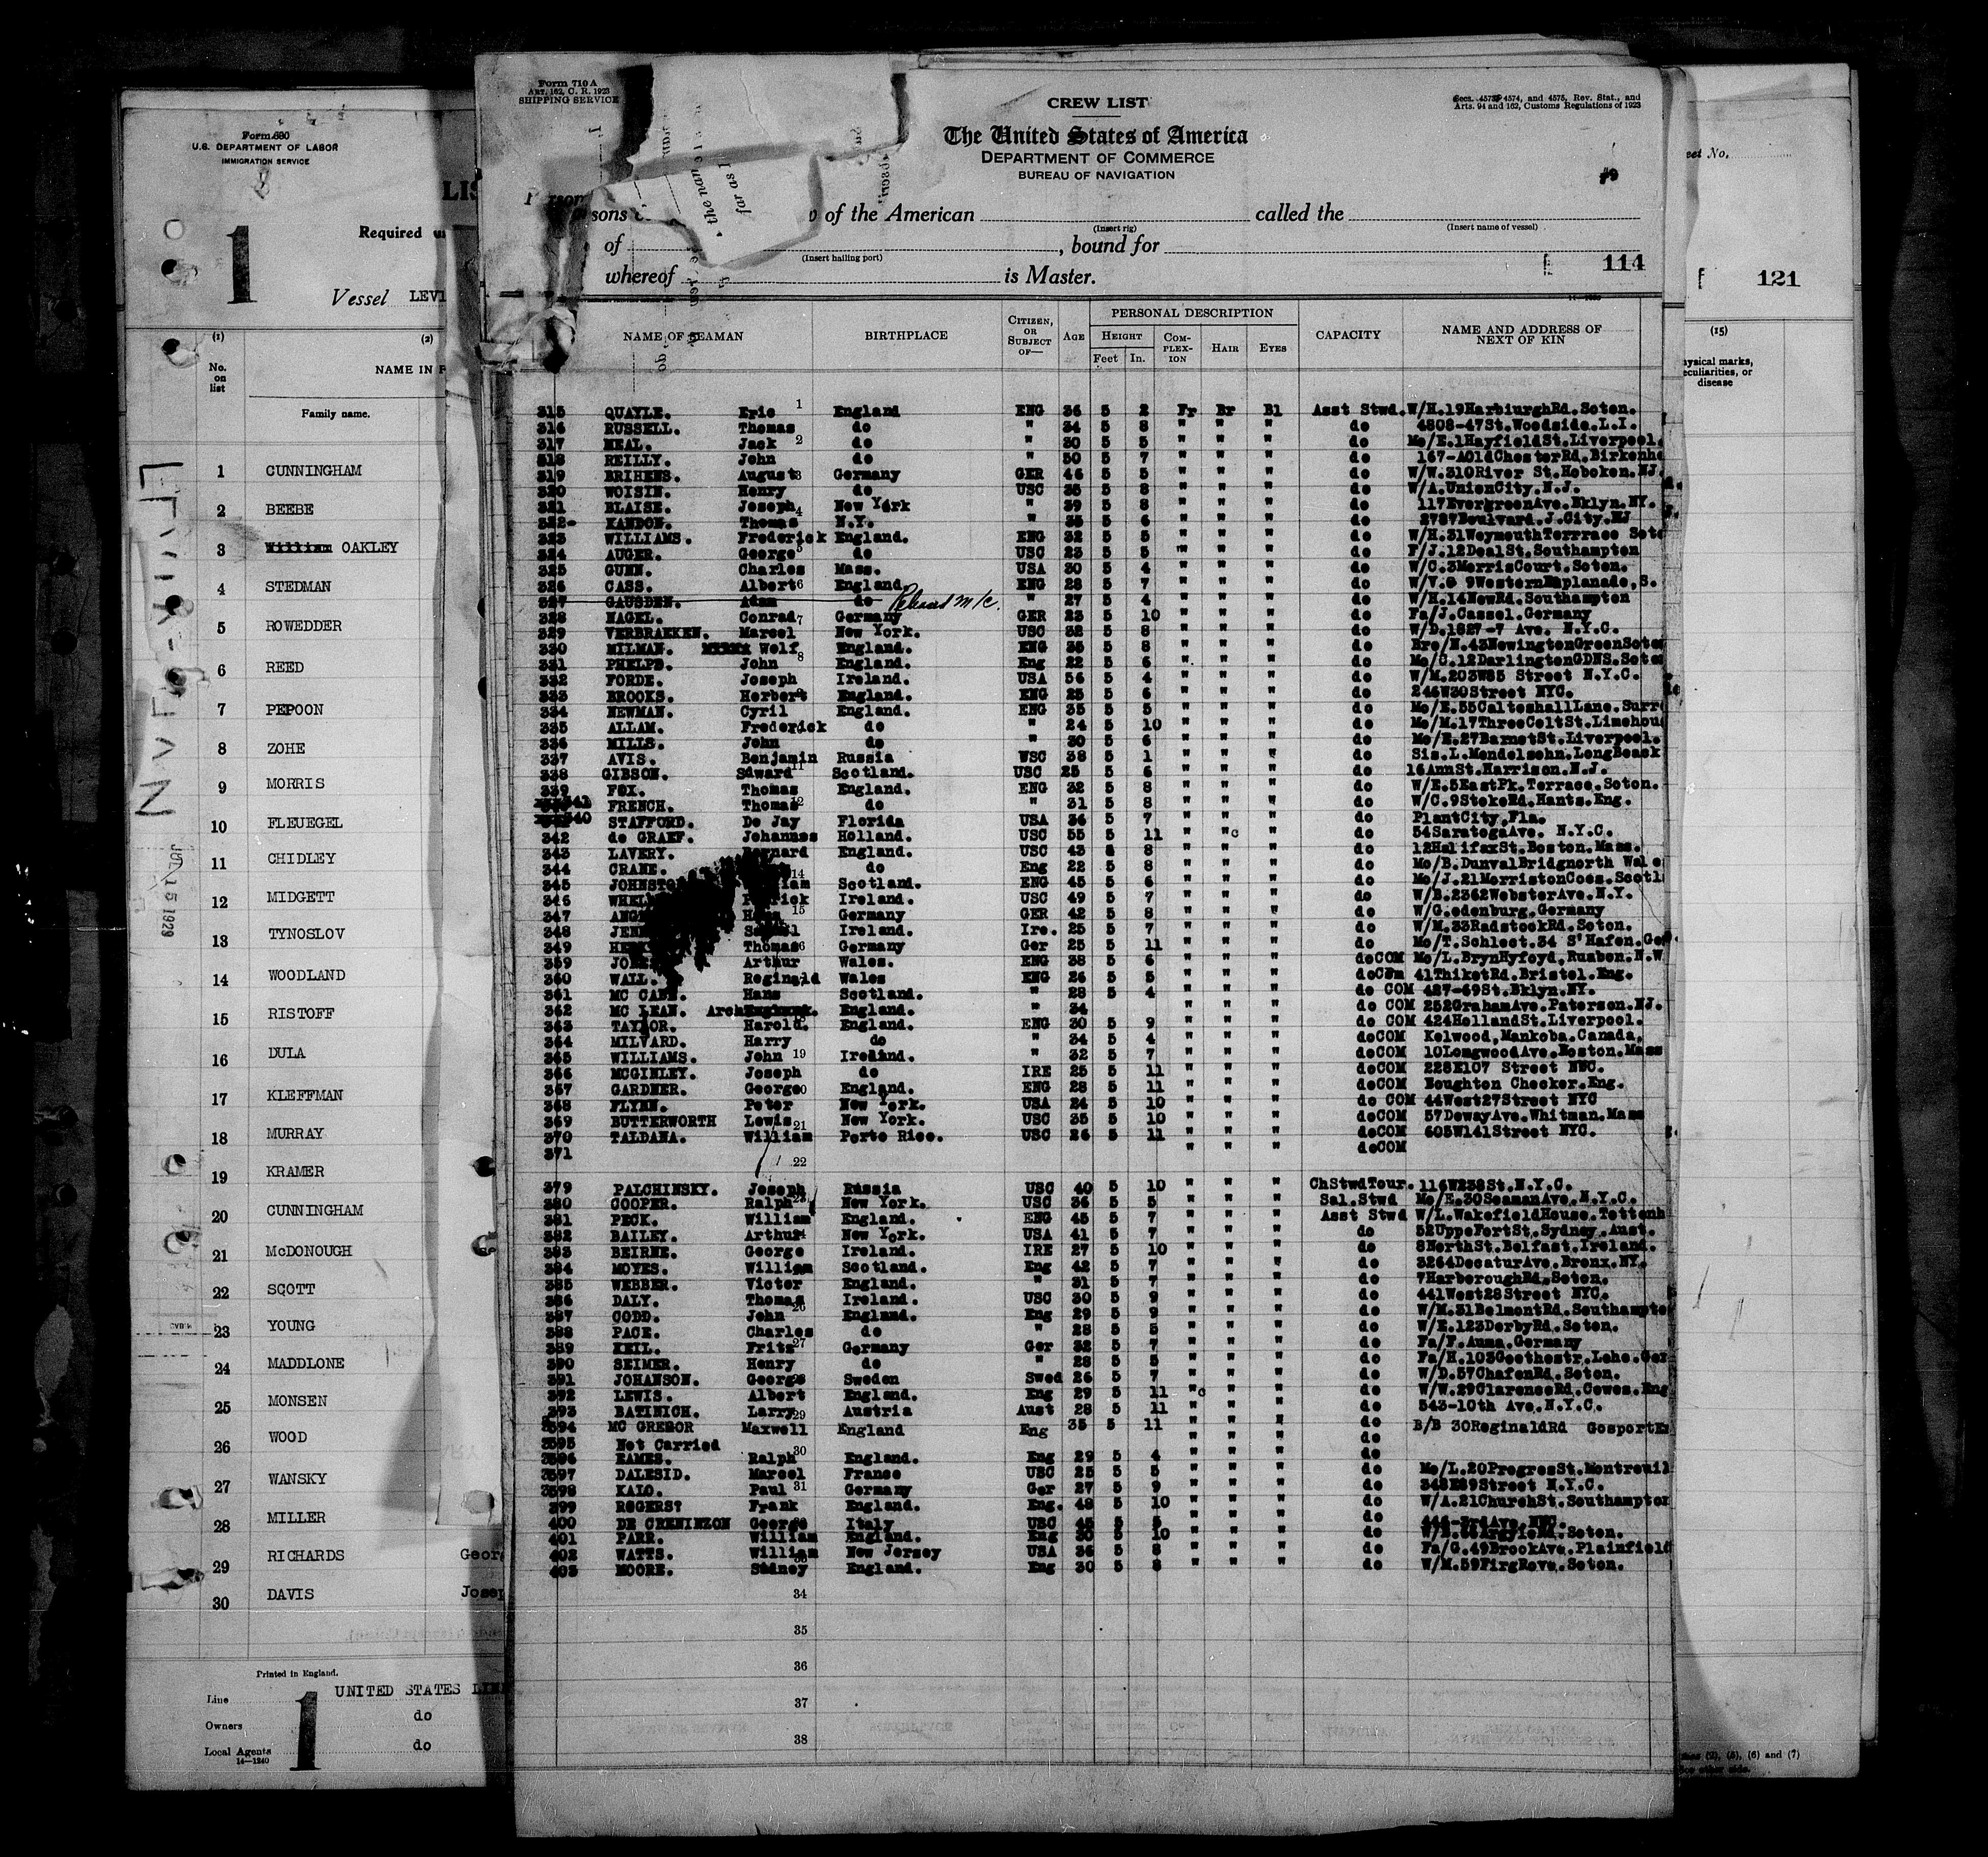 Form 680
U.S. DEPARTMENT OF LABOR
IMMIGRATION SERVICE
1
LIS
Required u
Vessel LEVI
(1) (2)
No. on list
NAME IN F
Family name.
1 CUNNINGHAM
2 BEEBE
3 William OAKLEY
4 STEDMAN
5 ROWEDDER
6 REED
7 PEPOON
8 ZOHE
9 MORRIS
10 FLEUEGEL
11 CHIDLEY
12 MIDGETT
13 TYNOSLOV
14 WOODLAND
15 RISTOFF
16 DULA
17 KLEFFMAN
18 MURRAY
19 KRAMER
20 CUNNINGHAM
21 McDONOUGH
22 SCOTT
23 YOUNG
24 MADDLONE
25 MONSEN
26 WOOD
27 WANSKY
28 MILLER
29 RICHARDS Geor
30 DAVIS Josep
JUL 15 1929
Printed in England.
Line UNITED STATES LIN
Owners do
Local Agents do
14-1240
1
Form 710 A
ART. 162, C. R. 1923
SHIPPING SERVICE
CREW LIST
Secs. 4573, 4574, and 4575, Rev. Stat., and
Arts. 94 and 162, Customs Regulations of 1923
The United States of America
DEPARTMENT OF COMMERCE
BUREAU OF NAVIGATION
#9
the name
far as I
of the American called the
(Insert rig) (Insert name of vessel)
of , bound for
(Insert hailing port)
whereof is Master.
114
NAME OF SEAMAN BIRTHPLACE CITIZEN, OR SUBJECT OF— AGE PERSONAL DESCRIPTION HEIGHT Feet In. COMPLEXION HAIR EYES CAPACITY NAME AND ADDRESS OF NEXT OF KIN
315 QUAYLE. Eric 1 England ENG 36 5 2 Fr Br Bl Asst Stwd. W/H.19HarbiurghRd.Soten.
316 RUSSELL. Thomas do " 34 5 8 " " " do 4808-47St.Woodside.L.I.
317 NEAL. Jack 2 do " 30 5 5 " " " do Mo/E.1HayfieldSt.Liverpool.
318 REILLY. John do " 50 5 7 " " " do 167-AOldChesterRd.Birkenhe
319 BRIHENS. August 3 Germany GER 46 5 5 " " " do W/W.310River St.Hoboken.NJ.
320 WOISIN. Henry do USC 35 5 8 " " " do W/A.UnionCity.N.J.
321 BLAISE. Joseph 4 New York " 39 5 8 " " " do 117EvergreenAve.Bklyn.NY.
322- KANDON. Thomas N.Y. " 35 5 6 " " " do 2787Boulvard.J.City.NJ
323 WILLIAMS. Frederick England. ENG 32 5 5 " " " do W/H.31WeymouthTerrrace Sote
324 AUGER. George 5 do USC 23 5 5 " " " do F/J.12DealSt.Southampton
325 GUNN. Charles Mass. USA 30 5 4 " " " do W/C.3MorrisCourt.Soten.
326 CASS. Albert 6 England ENG 28 5 7 " " " do W/V. 9WesternEsplanade,S.
327 GAUSDEN. Adam do " 27 5 4 " " " do W/H.14NewRd.Southampton
328 NAGEL. Conrad 7 Germany GER 23 5 10 " " " do Fa/J.Cassel.Germany
329 VERBRAEKEN. Marcel New York. USC 32 5 8 " " " do W/D.1827-7 Ave. N.Y.C.
330 MILMAN. Wolf 8 England. ENG 35 5 8 " " " do Bro/N.43NewingtonGreenSoten
331 PHELPS. John England. Eng 22 5 6 " " " do Mo/C.12DarlingtonGDNS.Soten
332 FORDE. Joseph Ireland. USA 56 5 4 " " " do W/M.203W85 Street N.Y.C.
333 BROOKS. Herbert England. ENG 25 5 6 " " " do 246W30Street NYC.
334 NEWMAN. Cyril England. ENG 35 5 5 " " " do Mo/E.55CalteshallLane.Surre
335 ALLAM. Frederick do " 24 5 10 " " " do Mo/M.17ThreeColtSt.Limehou
336 MILLS. John do " 30 5 6 " " " do Mo/E.27BarnetSt.Liverpool.
337 AVIS. Benjamin Russia USC 38 5 1 " " " do Sis.L.Mendelsohn.LongBeack
338 GIBSON. Edward 11 Scotland. USC 25 5 6 " " " do 16AnnSt.Harrison.N.J.
339 FOX. Thomas England. ENG 32 5 8 " " " do W/E.5EastPk.Terrace.Soton.
341 FRENCH. Thomas do " 31 5 8 " " " do W/C.9StokeRd.Hants.Eng.
340 STAFFORD. De Jay Florida USA 36 5 7 " " " do PlantCity,Fla.
342 de GRAEF. Johannes Holland. USC 55 5 11 " "c " do 54SaratogaAve. N.Y.C.
343 LAVERY. Bernard England. USC 43 8 " " " do 12HalifaxSt.Boston.Mass.
344 CRANE. do Eng 22 5 8 " " " do Mo/B.DunvalBridgnorth Wale
345 JOHNSTO 14 iam Scotland. ENG 45 5 6 " " " do Mo/J.21MorristonCoes.Scotl
346 WHEL rick Ireland. USC 49 5 7 " " " do W/B.2362WebsterAve.N.Y.
347 ANG 15 Germany GER 42 5 8 " " " do W/G.edenburg.Germany
348 JEN Ireland. Ire. 25 5 7 " " " do W/M.33RadstockRd.Soton.
349 HE Thomas Germany Ger 25 5 11 " " " do Mo/T.Schlect.34 S'Hafen.Ge
359 JO Arthur Wales. ENG 38 5 6 " " " doCOM Mo/L.BrynHyfoyd,Ruabon.N.W
360 WALL. Reginald Wales ENG 26 5 5 " " " doCom 41ThiketRd.Bristol.Eng.
361 MC CABE. Hans Scotland. " 28 5 4 " " " do COM 427-69St.Bklyn.NY.
362 MC LEAN. Arch England. " 34 " " " do COM 252GrahamAve.Paterson.NJ.
363 TAYLOR. Harold. England. ENG 30 5 9 " " " do COM 424HollandSt.Liverpool.
364 MILVARD. Harry do " 34 5 4 " " " doCOM Kelwood,Mankoba.Canada,
365 WILLIAMS. John 19 Ireland. " 32 5 7 " " " doCOM 10LongwoodAve.Boston.Mass
366 MCGINLEY. Joseph do IRE 25 5 11 " " " doCOM 228E107 Street NYC.
367 GARDNER. George England. ENG 28 5 11 " " " doCOM Houghton Checker.Eng.
368 FLYNN. Peter New York. USA 24 5 10 " " " do COM 44West27Street NYC
369 BUTTERWORTH Lewis 21 New York. USC 35 5 10 " " " doCOM 57DewayAve.Whitman.Mass
370 TALDANA. William Porto Rico. USC 26 5 11 " " " doCOM 605W141Street NYC.
371 " " " doCOM
22
379 PALCHINSKY. Joseph Russia USC 40 5 10 " " " ChStwdTour. 116W238St.N.Y.C.
380 COOPER. Ralph New York. USC 36 5 5 " " " Sal.Stwd Mo/E.30SeamanAve.N.Y.C.
381 PECK. William England. ENG 45 5 7 " " " Asst Stwd W/L.WakefieldHouse.Tottenh
382 BAILEY. Arthur New York. USA 41 5 7 " " " do 52UppeFortSt.Sydney.Aust.
383 BEIRNE. George Ireland. IRE 27 5 10 " " " do 8NorthSt.Belfast.Ireland.
384 MOYES. William Scotland. Eng 42 5 7 " " " do 3264DecaturAve.Bronx.NY.
385 WEBBER. Victor England. " 31 5 7 " " " do 7HarboroughRd.Soton.
386 DALY. Thomas Ireland. USC 30 5 9 " " " do 441West28Street NYC.
387 CODD. John England. Eng 29 5 9 " " " do W/M.31BelmontRd.Southampto
388 PACE. Charles do " 28 5 5 " " " do W/E.123DerbyRd.Soton.
389 KEIL. Fritz 27 Germany Ger 32 5 7 " " " do Fa/F.Auma.Germany
390 SEIMER. Henry do " 28 5 5 " " " do Fa/H.103Goethestr.Lehe.Ger
391 JOHANSON. George Sweden Swed 26 5 7 " " " do W/D.57ChafenRd.Soton.
392 LEWIS. Albert England. Eng 29 5 11 "c " " do W/W.29ClarenceRd.Cowes.Eng
393 BATINICH. Larry 29 Austria Aust 28 5 11 " " " do 543-10th Ave.N.Y.C.
394 MC GREGOR Maxwell England Eng 35 5 11 " " " do B/B 30ReginaldRd GosportE
395 Not Carried " " " do
396 EAMES. Ralph 30 England. Eng 29 5 4 " " " do
397 DALESID. Marcel France USC 25 5 5 " " " do Mo/L.20ProgresSt.Montreuil
398 KALO. Paul 31 Germany Ger 27 5 9 " " " do 348E89Street N.Y.C.
399 ROGERS? Frank England. Eng. 48 5 10 " " " do W/A.21ChurchSt.Southampton
400 DE CRENINZON George Italy USC 45 5 5 " " " do 444-3rdAve.NYC.
401 PARR. William England. Eng 30 5 10 " " " do
402 WATTS. William New Jersey USA 36 5 8 " " " do Fa/G.49BrookAve.Plainfield
403 MOORE. Sidney England. Eng 30 5 8 " " " do W/M.59FirgRove.Soton.
34
35
36
37
38
eet No.
121
(15)
hysical marks,
eculiarities, or
disease
(5), (6) and (7)
See other side.